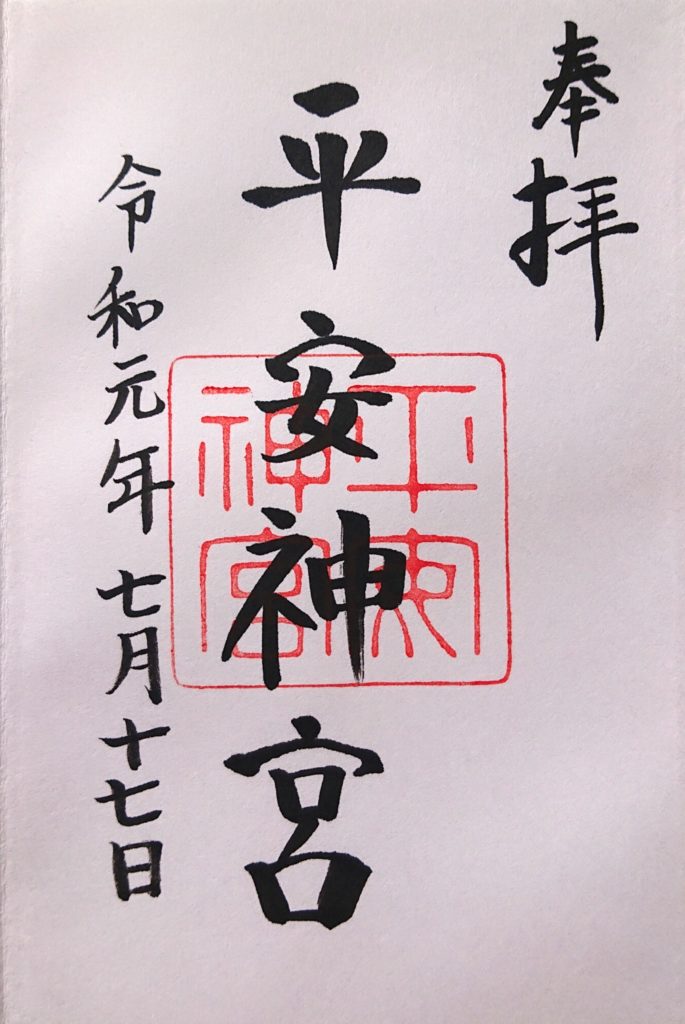 奉拝
平安神宮
令和元年七月十七日
平安神宮